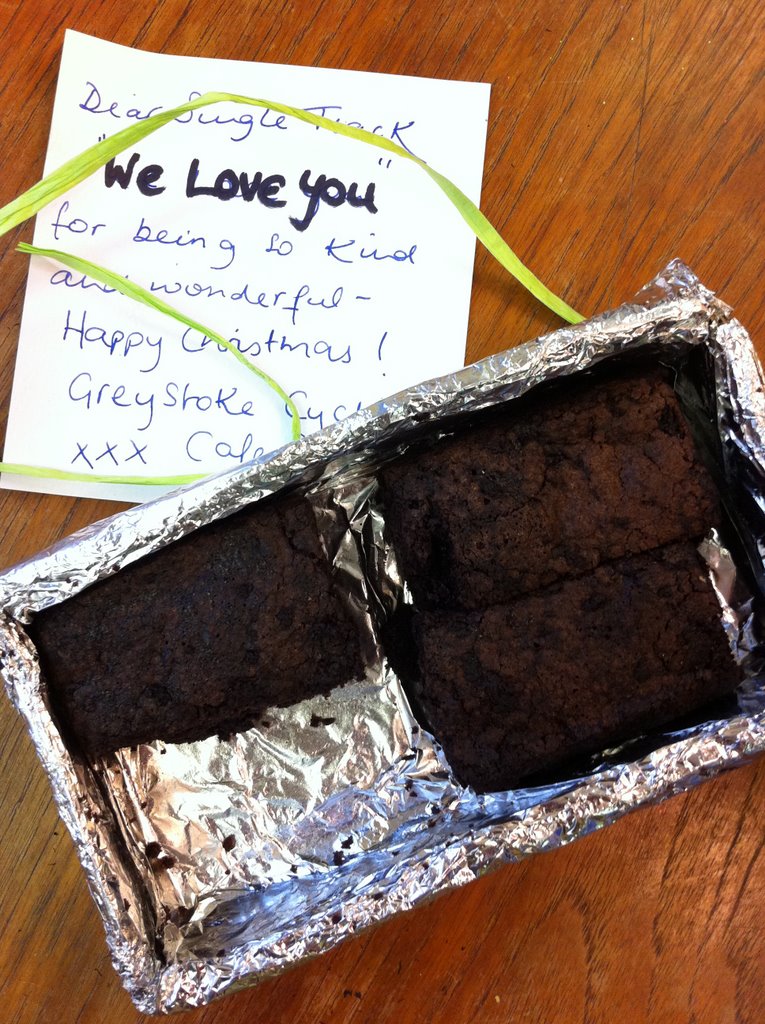 Dear Single Track
"We Love you"
for being so kind
and wonderful -
Happy Christmas!
Greystoke
xxx Cafe